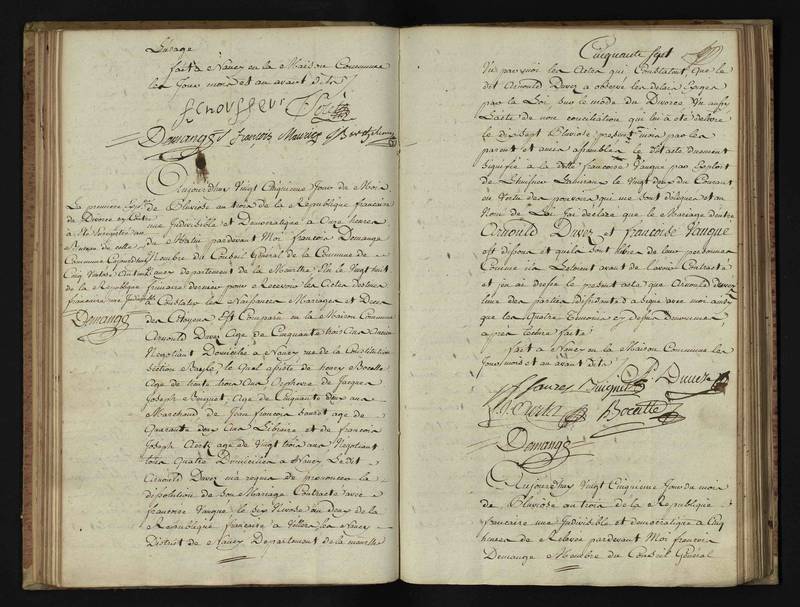 fait à Nancy en la Maison Commune
les Jour mois et an avant dits
Demange François Maurice
Aujourdhuy Vingt Cinquieme Jour du Mois
de Pluviose an trois de la Republique francaise
une Indivisible et Democratique a Onze heures
du Matin pardevant Moi francois Demange
Membre du Conseil Général de la Commune de
departement de la Meurthe Elu le Vingt huit
frimaire dernier pour Recevoir les Actes destinés
a Constater les Naissances Mariages et Deces
des Citoyens Est Comparu en la Maison Commune
Arnould Agé de Cinquante trois ans
Negotiant Domicilié à Nancy rue de la Constitution
Section le quel assisté de henry Bocatte
agé de trente trois ans Orphevre de Jacques
Joseph Age de Cinquante deux ans
Marchand de Jean francois agé de
Quarante deux ans Libraire et de francois
Joseph agé de Vingt trois ans Negotiant
tous Quatre Domiciliés a Nancy Le dit
Arnould ma requis de prononcer la
dissolution de Son Mariage Contracté avec
francoise le Six Nivose an deux de la
Republique francaise a Villers les Nancy
District de Nancy Departement de la meurthe
La premiere
de Divorce
a été
Bureau de cette
Commune
Cinq
de la Republique
francaise une Indivisible
Demange
Cinquante sept
Vu par moi les Actes qui Constatent que le
dit Arnould a observé les delais Exigés
par la Loi, sur le mode du Divorce Vu aussy
l'acte de non conciliation qui lui a été délivré
le dix Sept Pluviose present mois par les
parent et amis assemblés le dit acte duement
Signifié a la ditte francoise par Exploit
de Lhuissier le Vingt deux du Courant
en Vertu des pouvoirs qui me sont délégués et au
Nom de la Loi Jai declaré que le Mariage d'entre
Arnould et francoise
est dissous et quils sont libres de leur personnes
Comme ils Letoient avant de l'avoir Contracté
et jen ai dressé le present acte que Arnould
lune des parties a signé avec moi ainsi
que les Quatre temoins cy dessus denommés
après lecture faite
fait a Nancy en la Maison Commune les
Jour mois et an avant dits
Bocatte
Demange
Aujourdhuy Vingt Cinquieme Jour du mois
de Pluviose an trois de la Republique
francaise une Indivisible et democratique a Cinq
heures de Relevée pardevant Moi francois
Demange Membre du Conseil Général